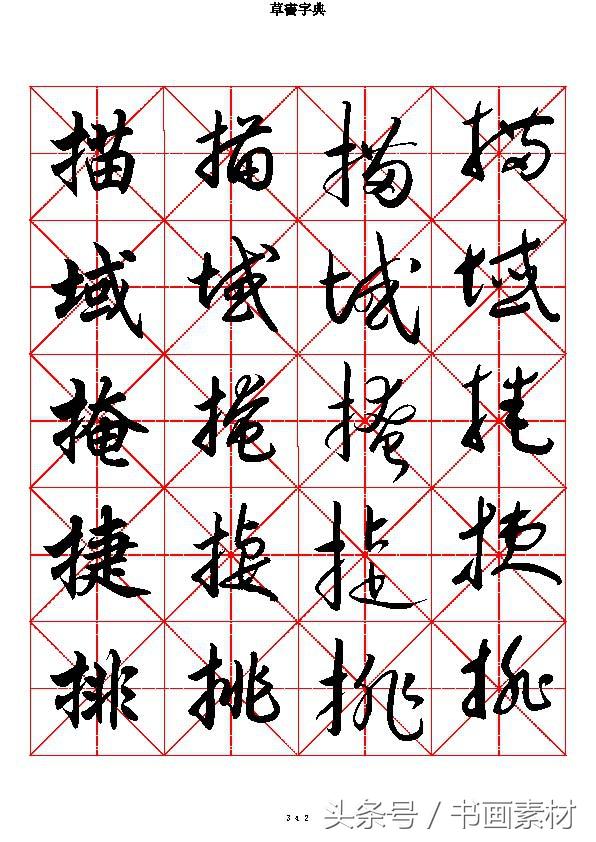 草書字典
描描描描
域域域域
掩掩掩掩
捷捷捷捷
排排排排
342
头条号 / 书画素材